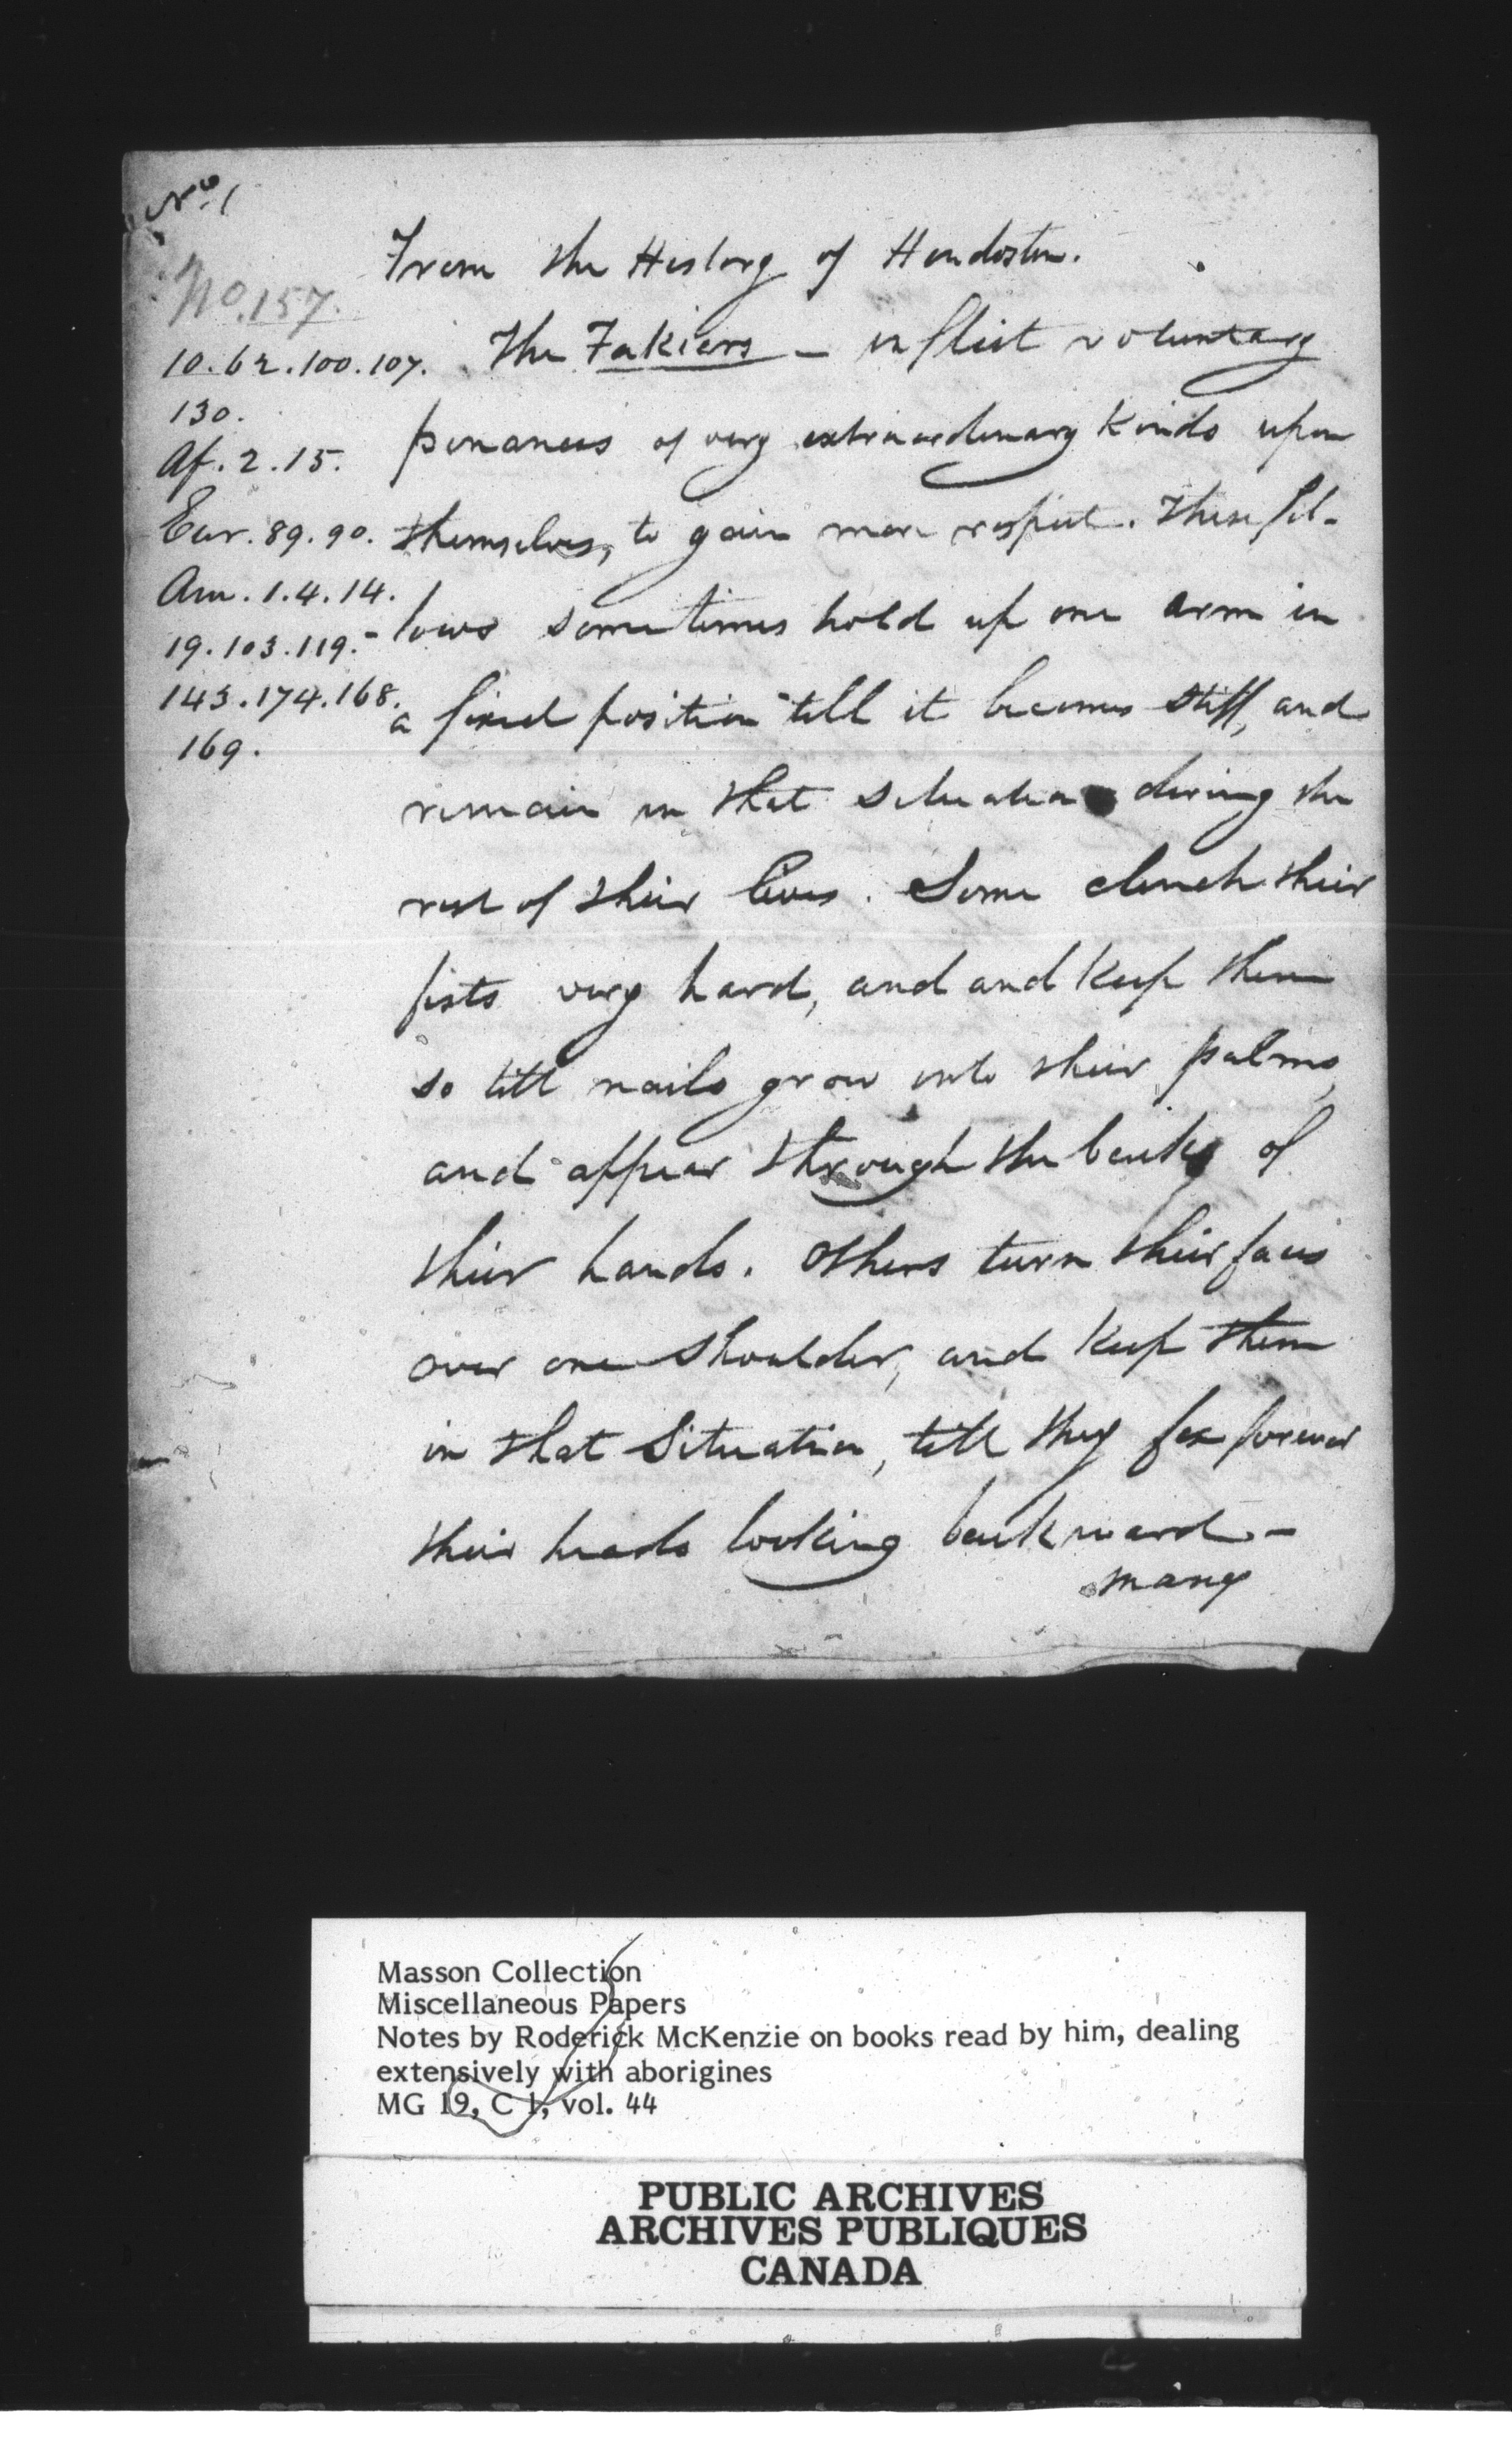 No. 1
No. 157.
10.62.100.107.
130.
Af. 2.15.
Eur. 89.90.
Am. 1.4.14.
19.103.119.-
143.174.168.
169.
From the History of Hindostan.
The Fakiers — inflict voluntary
penances of very extraordinary Kinds upon
themselves, to gain more respect. These fel-
lows sometimes hold up one arm in
a fixed position till it becomes stiff, and
remain in that situation during the
rest of their lives. Some clench their
fists very hard, and and Keep them
so till nails grow into their palms,
and appear through the backs of
their hands. Others turn their faces
over one shoulder, and Keep them
in that Situation, till they fix forever
their heads looking backward —
many
Masson Collection
Miscellaneous Papers
Notes by Roderick McKenzie on books read by him, dealing
extensively with aborigines
MG 19, C 1, vol. 44
PUBLIC ARCHIVES
ARCHIVES PUBLIQUES
CANADA